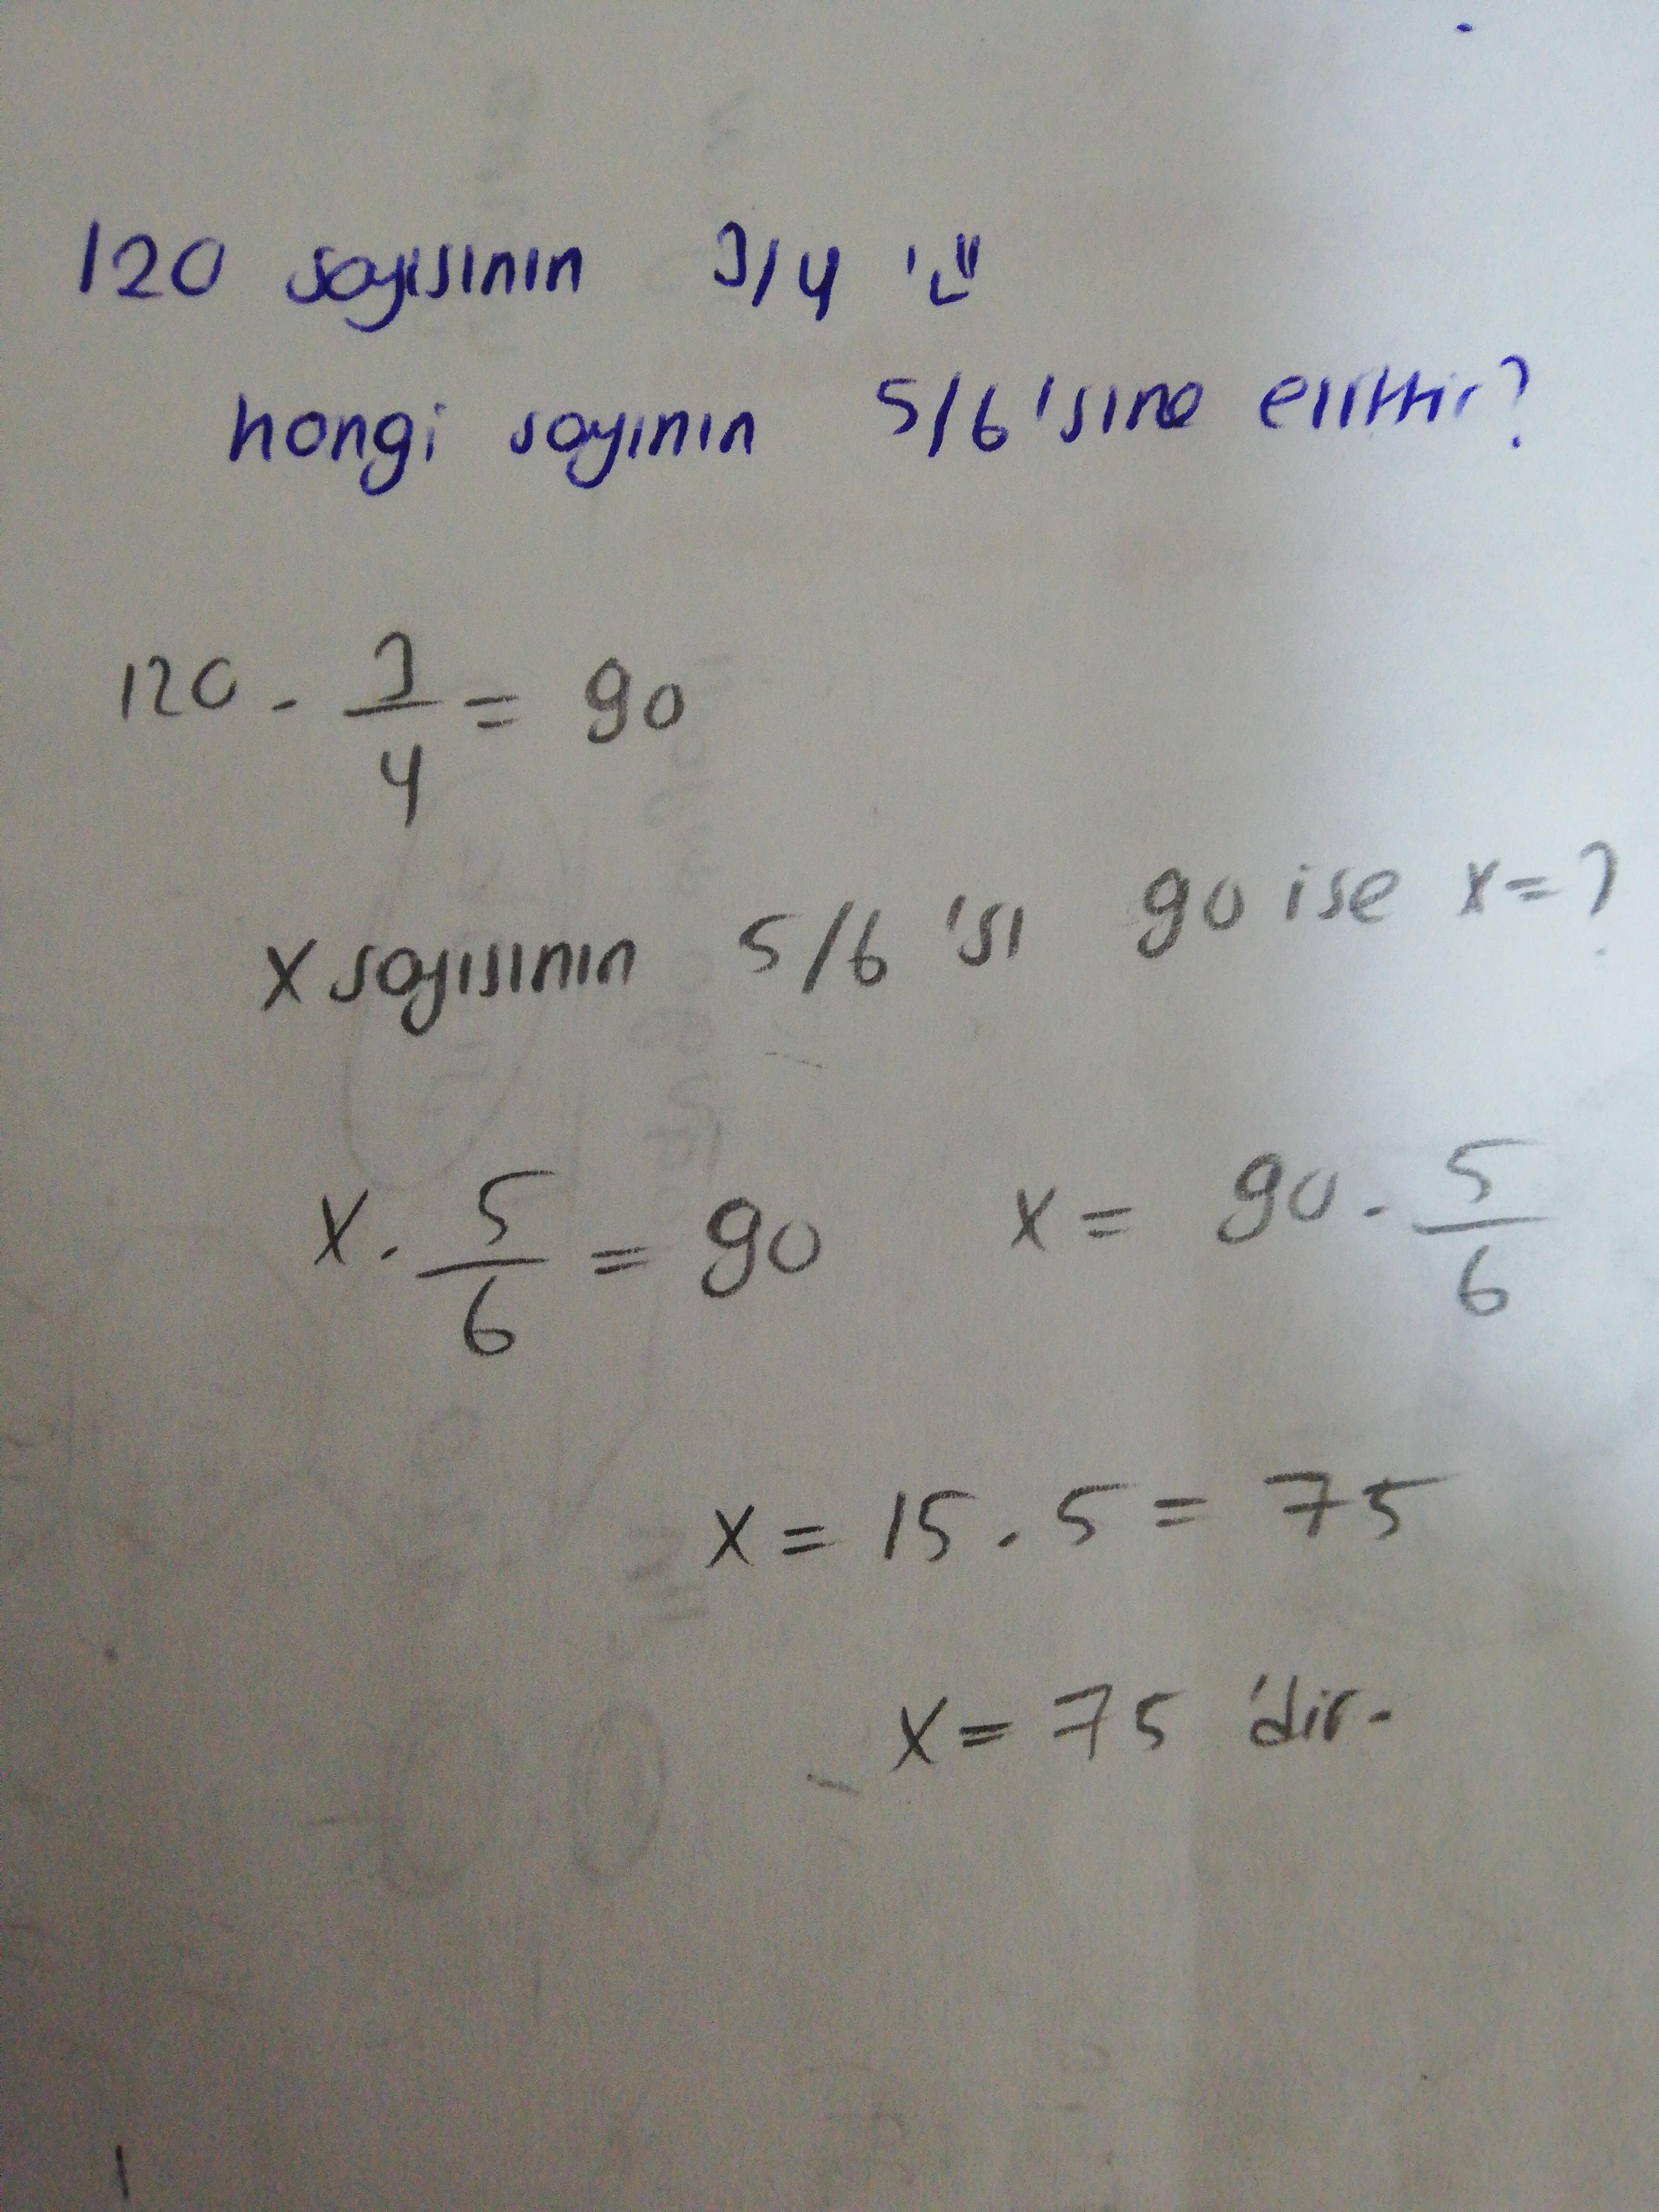 120 sayısının 3/4 'ü
hangi sayının 5/6'sine eşittir?
120 . 3/4 = 90
x sayısının 5/6 'sı 90 ise x=?
x . 5/6 = 90 x = 90 . 5/6
x = 15 . 5 = 75
x = 75 'dir.